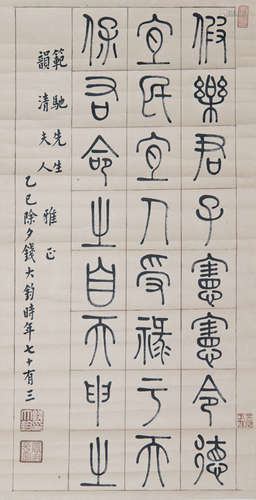 假樂君子憲憲令德
宜民宜人受祿于天
保右命之自天申之
範馳先生
韻清夫人
雅正
乙巳除夕錢大鈞時年七十有三